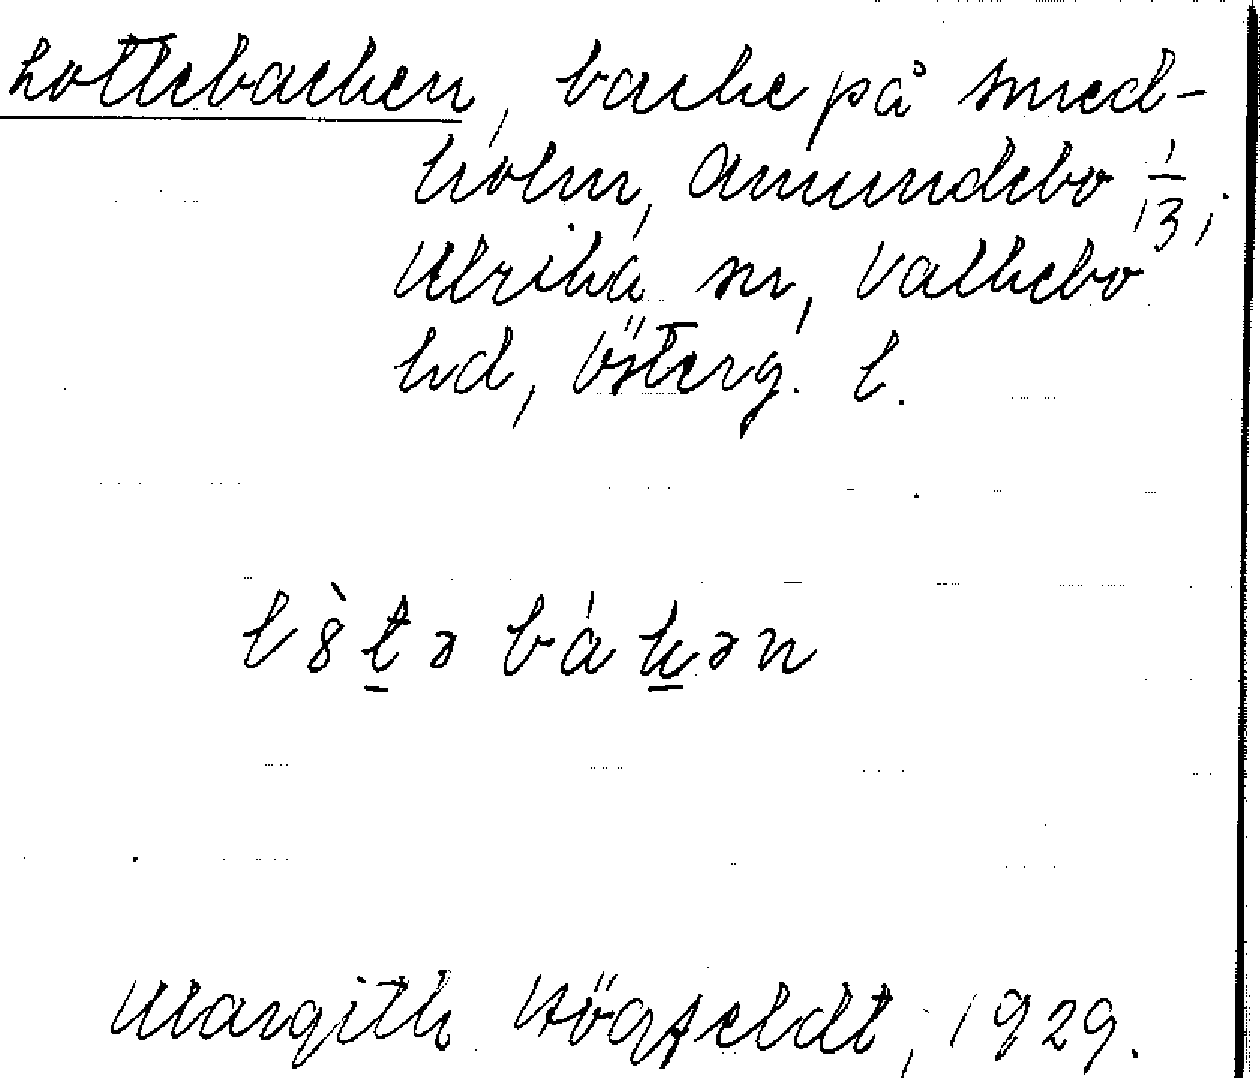 Lottebacken, backe på Smed-
holm, Amundebo 1/13;
Ulrika sn, Valkebo
hd, Österg. l.
l8̀t̠ə bák̠ən
Margith Högfeldt, 1929.